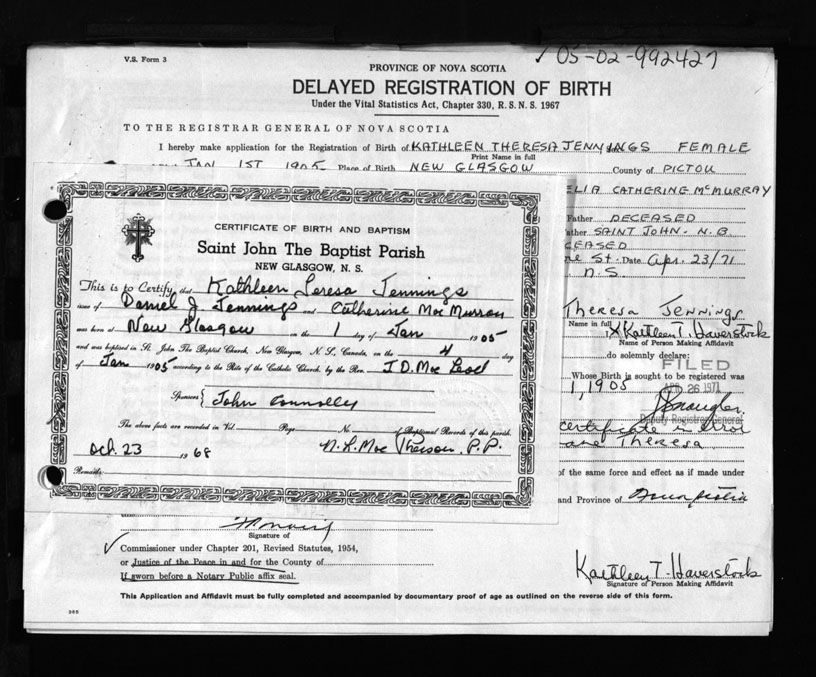 V.S. Form 3
✓ 05-02-992427
PROVINCE OF NOVA SCOTIA
DELAYED REGISTRATION OF BIRTH
Under the Vital Statistics Act, Chapter 330, R.S.N.S. 1967
TO THE REGISTRAR GENERAL OF NOVA SCOTIA
I hereby make application for the Registration of Birth of KATHLEEN THERESA JENNINGS FEMALE
Print Name in full
JAN 1ST 1905 Place of Birth NEW GLASGOW County of PICTOU
ELIA CATHERINE McMURRAY
Father DECEASED
ather SAINT JOHN - N.B.
CEASED
St. Date Apr. 23/71
N.S.
CERTIFICATE OF BIRTH AND BAPTISM
Saint John The Baptist Parish
NEW GLASGOW, N. S.
This is to Certify, that Kathleen Teresa Jennings
issue of Daniel J Jennings and Catherine Mac Murray
was born at New Glasgow on the 1 day of Jan 1905
and was baptised in St. John The Baptist Church, New Glasgow, N. S., Canada, on the 4 day
of Jan 1905 according to the Rites of the Catholic Church, by the Rev. J D. Mac Leod
Sponsors { John Connolly
The above facts are recorded in Vol. Page No. Baptismal Records of this parish.
Oct. 23 1968 P.P.
Remarks:
Theresa Jennings
Name in full
X Kathleen T. Haverstock
Name of Person Making Affidavit
do solemnly declare:
FILED
Whose Birth is sought to be registered was
1, 1905 APR 26 1971
Deputy Registrar General
certificate is error
Theresa
of the same force and effect as if made under
and Province of Nova Scotia
Signature of
✓ Commissioner under Chapter 201, Revised Statutes, 1954,
or Justice of the Peace in and for the County of
If sworn before a Notary Public affix seal.
Kathleen T. Haverstock
Signature of Person Making Affidavit
This Application and Affidavit must be fully completed and accompanied by documentary proof of age as outlined on the reverse side of this form.